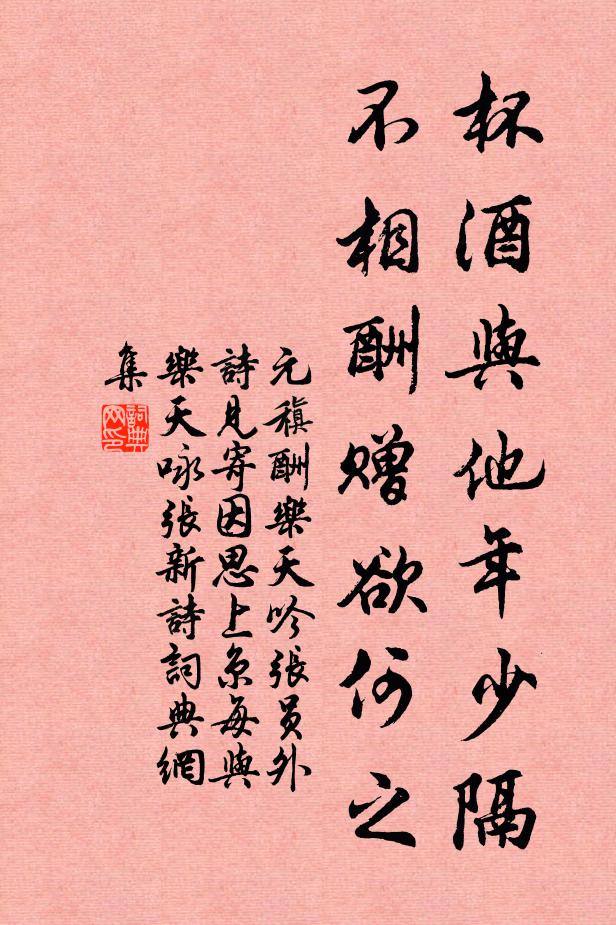 杯酒與他年少隔
不相酬贈欲何之
元稹酬樂天吟張員外
詩見寄因思上京每與
樂天咏張新詩詞典網
集
詞典網印